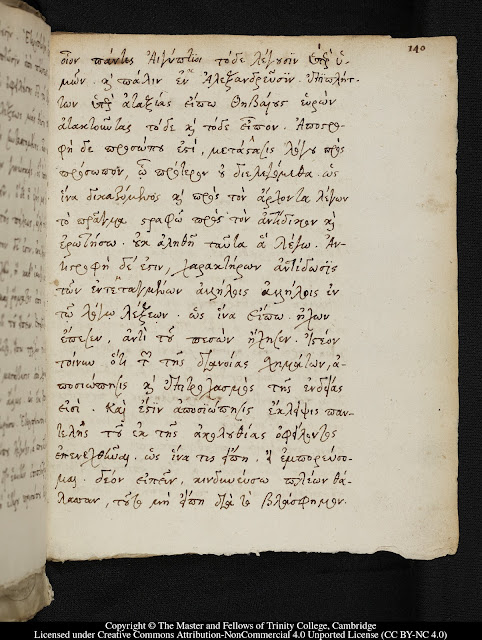 140
οἷον πάντες Αἰγύπτιοι τόδε λέγουσιν ὑπὲρ ὑ-
μῶν. καὶ πάλιν ἐν Ἀλεξανδρεῦσιν.
των ὑπὲρ ἀταξίας εἴπω Θηβαίους εὑρὼν
ἀτακτοῦντας τόδε καὶ τόδε εἶπον. Ἀποστρο-
φὴ δὲ προσώπου ἐστὶ, μετάβασις λόγου πρὸς
πρόσωπον, ᾧ πρότερον οὐ διελεγόμεθα. ὡς
ἵνα δικαζόμενος καὶ πρὸς τὸν ἄρχοντα λέγων
τὸ πρᾶγμα στραφῶ πρὸς τὸν ἀντίδικον καὶ
ἐρωτήσω. οὐκ ἀληθῆ ταῦτα ἃ λέγω. Ἀν-
τιστροφὴ δέ ἐστιν, χαρακτήρων ἀντίδωσις
τῶν ἐντεταγμένων ἀλλήλοις ἀλλήλοις ἐν
τῷ λόγῳ λέξεων. ὡς ἵνα εἴπω. ἥλων
ἔπεσεν, ἀντὶ τοῦ πεσὼν ἥλησεν. Ἰστέον
τοίνυν ὅτι τῆς διανοίας σχημάτων, ἀ-
ποσιώπησις καὶ ἐπιτροχασμὸς τῆς ἐνδείας
εἰσί. Καὶ ἔστιν ἀποσιώπησις ἔκλειψις παν-
τελὴς τοῦ ἐκ τῆς ἀκολουθίας ὀφείλοντος
ἐπενεχθῆναι. ὡς ἵνα τις εἴπῃ. ἐμπορεύσο-
μαι. δέον εἰπεῖν, κινδυνεύσω πλέων θά-
λασσαν, τοῦτο μὴ εἴπῃ διὰ τὸ βλάσφημον.
Copyright © The Master and Fellows of Trinity College, Cambridge
Licensed under Creative Commons Attribution-NonCommercial 4.0 Unported License (CC BY-NC 4.0)